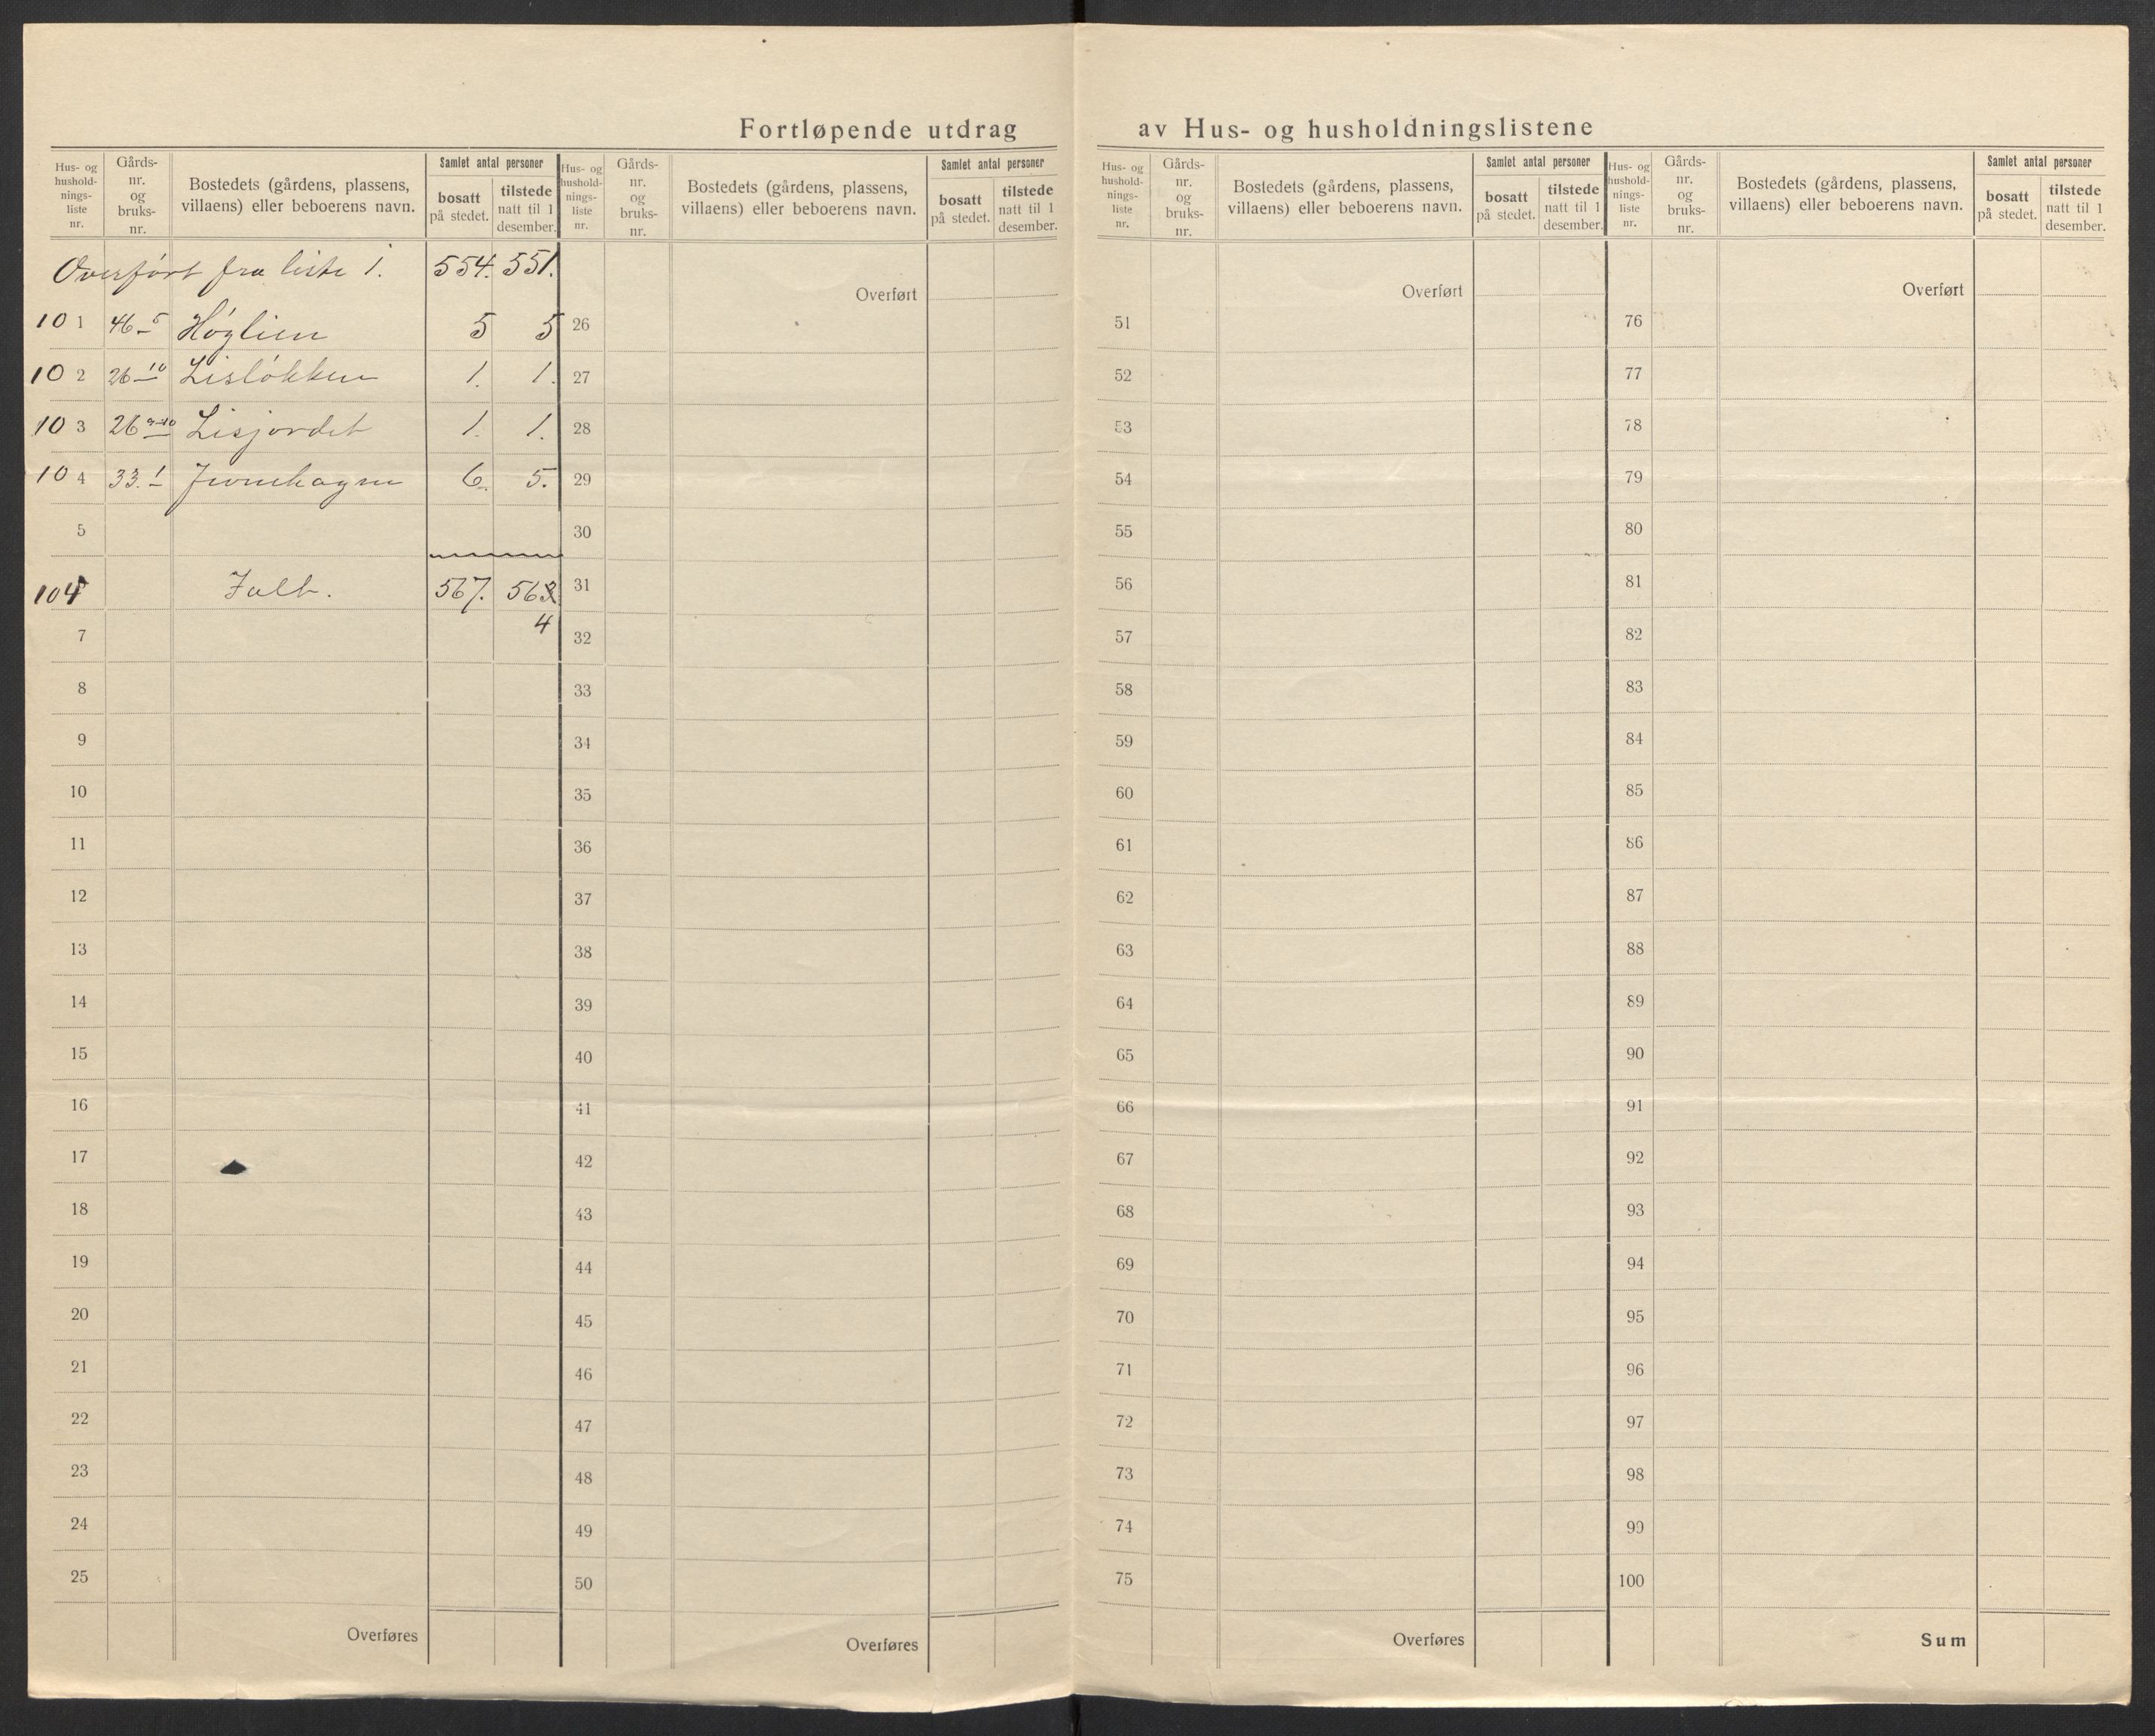 Fortløpende utdrag av Hus- og husholdningslistene
Hus- og hushold- nings- liste nr.
Gårds- nr. og bruks- nr.
Bostedets (gårdens, plassens, villaens) eller beboerens navn.
Samlet antal personer
bosatt på stedet.
tilstede natt til 1 desember.
Hus- og hushold- nings- liste nr.
Gårds- nr. og bruks- nr.
Bostedets (gårdens, plassens, villaens) eller beboerens navn.
Samlet antal personer
bosatt på stedet.
tilstede natt til 1 desember.
Hus- og hushold- nings- liste nr.
Gårds- nr. og bruks- nr.
Bostedets (gårdens, plassens, villaens) eller beboerens navn.
Samlet antal personer
bosatt på stedet.
tilstede natt til 1 desember.
Hus- og hushold- nings- liste nr.
Gårds- nr. og bruks- nr.
Bostedets (gårdens, plassens, villaens) eller beboerens navn.
Samlet antal personer
bosatt på stedet.
tilstede natt til 1 desember.
Overført fra liste 1. 554. 551.
101 46-5 Höglien 5 5
102 26-10 Lislökken 1. 1.
103 26 Lisjordet 1. 1.
104 33.1 6. 5.
5
104 Ialt. 567. 563
4
7
8
9
10
11
12
13
14
15
16
17
18
19
20
21
22
23
24
25
Overføres
Overført
26
27
28
29
30
31
32
33
34
35
36
37
38
39
40
41
42
43
44
45
46
47
48
49
50
Overføres
Overført
51
52
53
54
55
56
57
58
59
60
61
62
63
64
65
66
67
68
69
70
71
72
73
74
75
Overføres
Overført
76
77
78
79
80
81
82
83
84
85
86
87
88
89
90
91
92
93
94
95
96
97
98
99
100
Sum